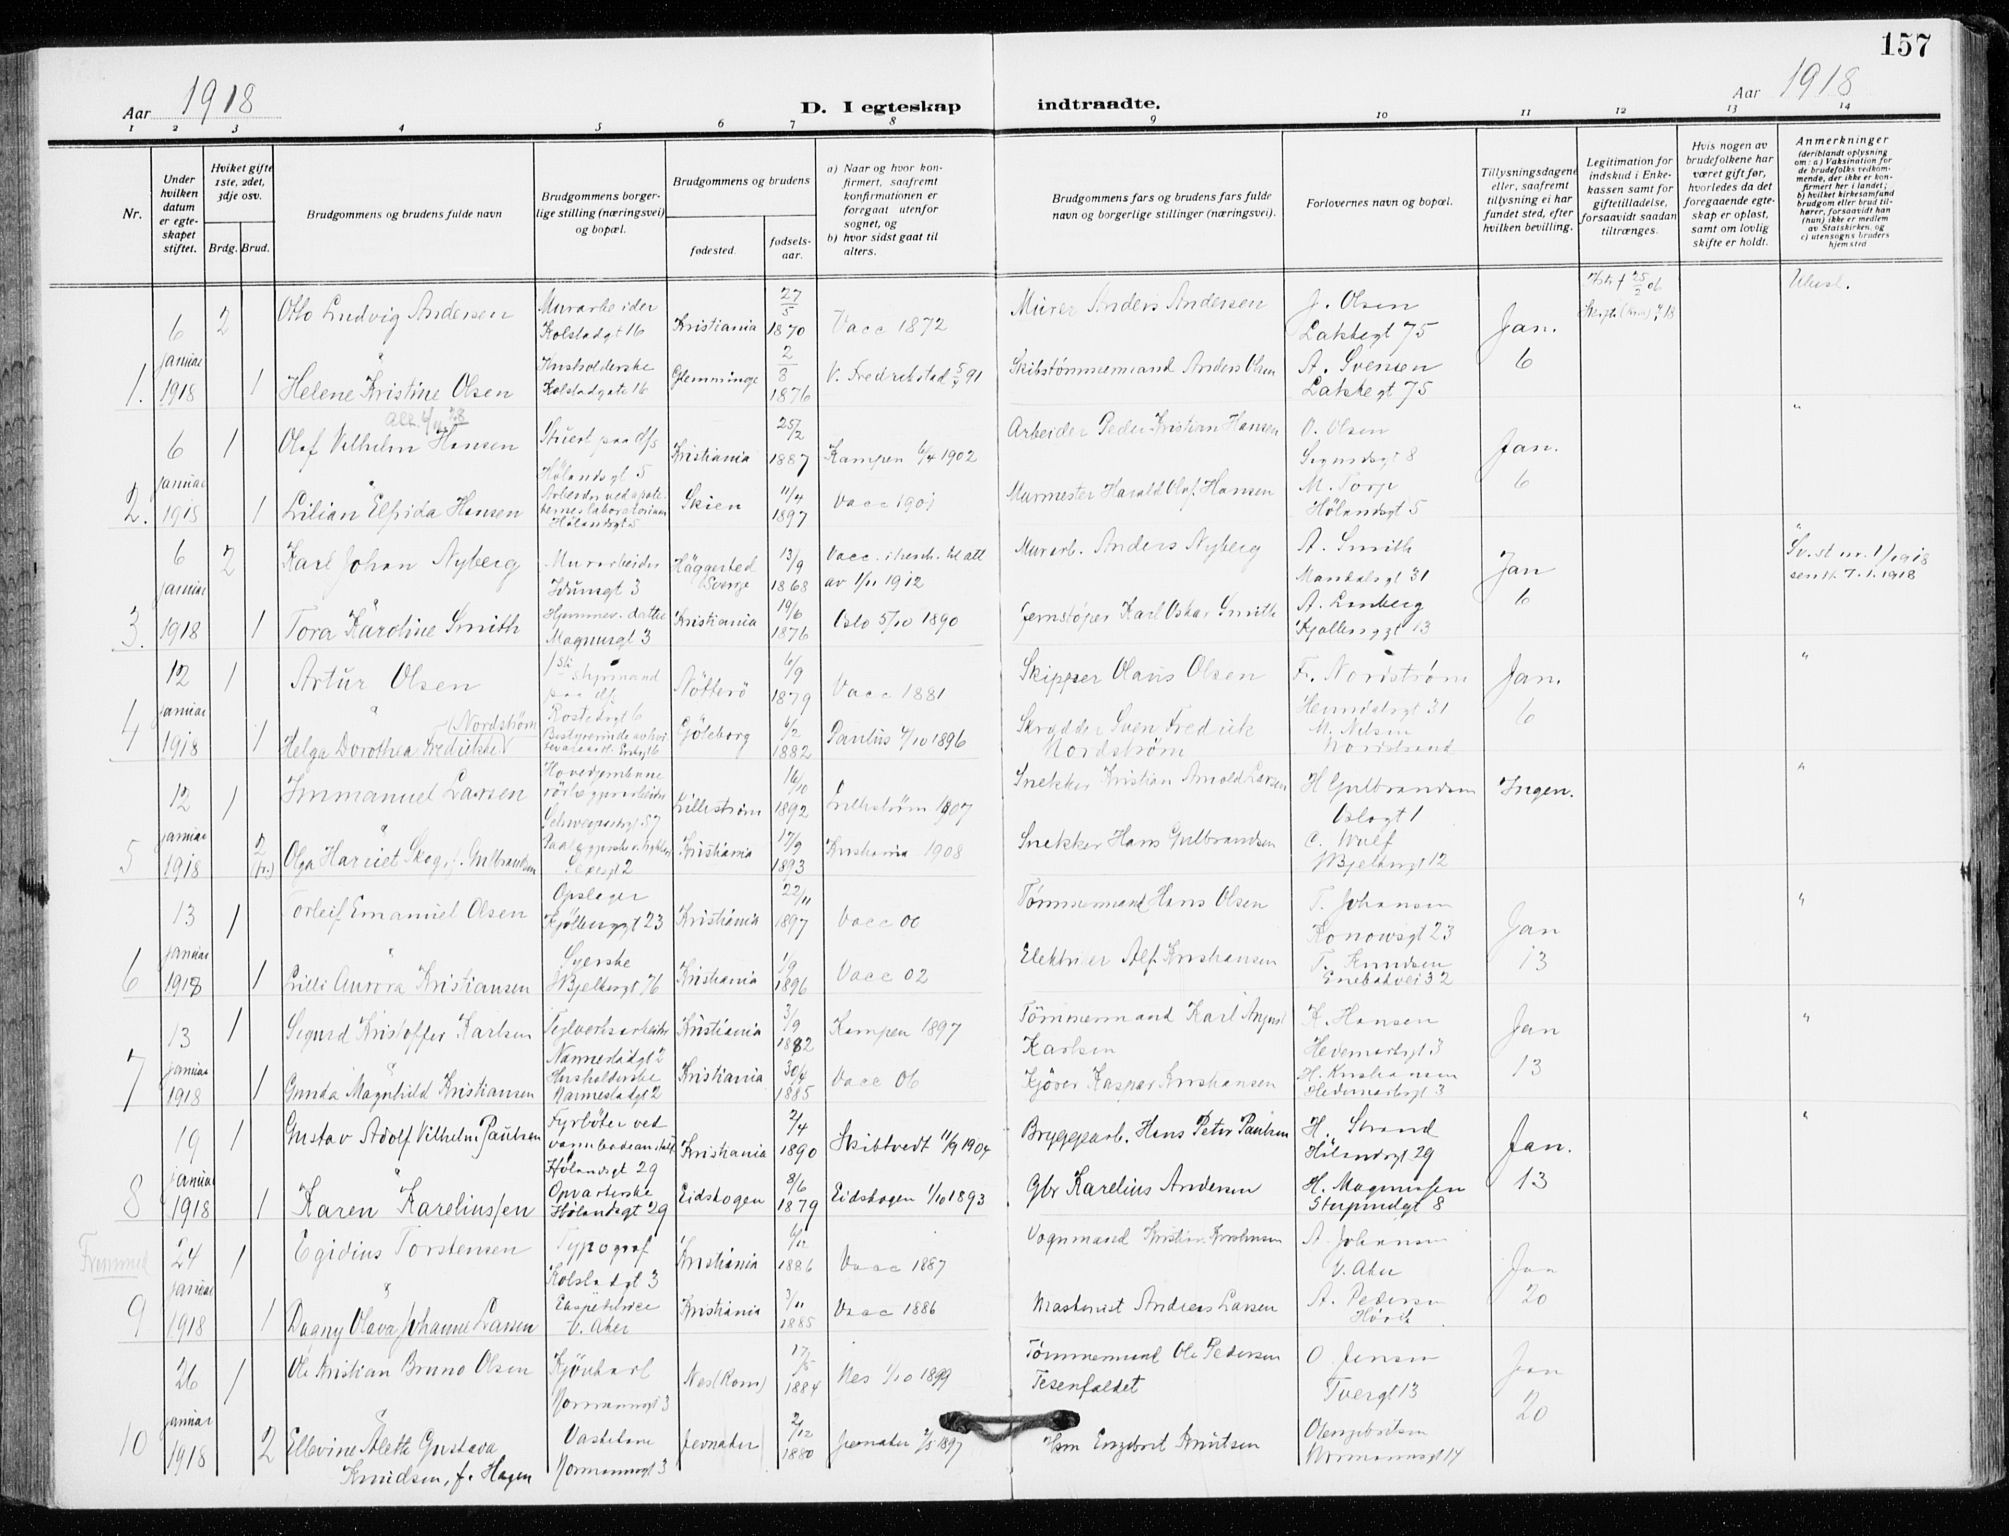 157
Aar 1918
D. I egteskap indtraadte.
Aar 1918
1 2 3 4 5 6 7 8 9 10 11 12 13 14
Nr.
Under hvilken datum er egteskapet stiftet.
Hviket gifte 1ste, 2det, 3dje osv.
Brdg. Brud.
Brudgommens og brudens fulde navn
Brudgommens borgerlige stilling (næringsvei) og bopæl.
Brudgommens og brudens
fødested.
fødselsaar.
a) Naar og hvor konfirmert, saafremt konfirmationen er foregaat utenfor sognet, og
b) hvor sidst gaat til alters.
Brudgommens fars og brudens fars fulde navn og borgerlige stillinger (næringsvei).
Forlovernes navn og bopæl.
Tillysningsdagene eller, saafremt tillysning ei har fundet sted, efter hvilken bevilling.
Legitimation for indskud i Enkekassen samt for giftetilladelse, forsaavidt saadan tiltrænges.
Hvis nogen av brudefolkene har været gift før, hvorledes da det foregaaende egteskap er opløst, samt om lovlig skifte er holdt.
Anmerkninger
(deriblandt oplysning om: a) Vaksination for de brudefolks vedkommende, der ikke er konfirmert her i landet; b) hvilket kirkesamfund brudgom eller brud tilhører, forsaavidt han (hun) ikke er medlem av Statskirken, og c) utensogns bruders hjemsted
1. 6 januar 1918
2 Otto Ludvig Andersen Murarbeider Kolstadgt 16 Kristiania 27/5 1870 Vacc 1872 Murer Anders Andersen J. Olsen Lakkegt 75 Jan. 6
1 Helene Kristine Olsen Husholderske Kolstadgate 16 Glemminge 2/8 1876 V. Fredrikstad 5/4 91 Skibstømmermand Anders Olsen A. Svensen Lakkegt 75
2. 6 januar 1918
1 Olaf Vilhelm Hansen Stuert paa d/s Hølandsgt 5 Kristiania 25/2 1887 Kampen 6/4 1902 Arbeider Peder Kristian Hansen O. Olsen Sigurdsgt 8 Jan. 6 "
1 Lilian Elfrida Hansen Arbeider ved apotekernes laboratorium Hølandsgt 5 Skien 11/4 1897 Vacc 1901 Murmester Harald Olaf Hansen M. Torp Hølandsgt 5
3. 6 januar 1918
2 Karl Johan Nyberg Murarbeider Idunsgt 3 Häggersted Sverge 13/9 1868 Vacc. i hench. til att av 1/11 1912 Murarb. Anders Nyberg A. Smith Mandalsgt 31 Jan 6 Sv. st nr. 1/1918
1 Tora Karoline Smith Hjemmev. datter Magnusgt 3 Kristiania 19/6 1876 Oslo 5/10 1890 Jernstøper Karl Oskar Smith A. Lanberg Kjølberggt 13
4 12 januar 1918
1 Artur Olsen 1ste styrmand paa d/s Rostedsgt 6 Nötterö 6/9 1879 Vacc 1881 Skipper Olaus Olsen Fr. Nordstrøm Heimdalsgt 31 Jan. 6 "
1 Helga Dorothea Fredrikke Nordstrøm Göteborg 6/2 1882 Paulus 4/10 1896 Skrædder Sven Fredrik Nordstrøm M. Nilsen Nordstrand
5 12 januar 1918
1 Immanuel Larsen Schweigaardsgt 57 Lillestrøm 16/10 1892 Lillestrøm 1907 Snekker Kristian Arnold Larsen H Gulbrandsen Oslogt 1 Ingen. "
2 Olga Harriet Skog, f. Gulbrandsen Kristiania 17/9 1893 Kristiania 1908 Snekker Hans Gulbrandsen C. Wulf Bjelkesgt 12
6 13 januar 1918
1 Torleif Emanuel Olsen Opslager Kjølberggt 23 Kristiania 22/11 1897 Vacc 06 Tømmermand Hans Olsen T. Johansen Konowsgt 23 Jan 13 "
1 Lilli Aurora Kristiansen Syerske Kristiania 1/9 1896 Vacc 02 Elektriker Alf Kristiansen T. Knudsen Enebakvei 32
7 13 januar 1918
1 Sigurd Kristoffer Karlsen Teglverksarbeider Nannestadgt 2 Kristiania 3/9 1882 Kampen 1897 Tömmermand Karl August Karlsen K. Hansen Hedemarksgt 3 Jan 13 "
1 Gunda Magnhild Kristiansen Husholderske Nannestadgt 2 Kristiania 30/4 1885 Vacc 06 Kjører Kaspar Kristiansen H. Kristiansen Hedemarksgt 3
8 19 januar 1918
1 Gustav Adolf Vilhelm Paulsen Fyrbøter ved varmbadeanstalt Hølandsgt 29 Kristiania 2/4 1890 Skibtvedt 11/9 1904 Bryggearb. Hans Peter Paulsen H. Strand Hølandsgt 29 Jan. 13 "
1 Karen Kareliussen Opvarterske Hølandsgt 29 Eidskogen 8/6 1879 Eidskogen 1/10 1893 Gbr Karelius Andersen H. Magnussen Sturpindgt 8
9 24 januar 1918
1 Egidius Torstensen Typograf Kolstadgt 3 Kristiania 1886 Vacc 1887 Vognmand Kristian Kristiansen A. Johansen V. Aker Jan 20
1 Dagny Olava Johanne Larsen Ekspeditrice V. Aker Kristiania 3/11 1885 Vacc 1886 Maskinist Andreas Larsen A. Pedersen
10 26 januar 1918
1 Ole Kristian Bruno Olsen Normannsgt 3 Nes (Rom) 17/5 1884 Nes 1/10 1899 Tømmermand Ole Pedersen Tesenfaldet O. Jensen Tvergt 13 Jan 20
2 Ellevine Alette Gustava Knudsen, f. Hagen Normannsgt 3 Jevnaker 2/12 1880 Jevnaker 1897 Hsm Engebret Knutsen Normannsgt 14